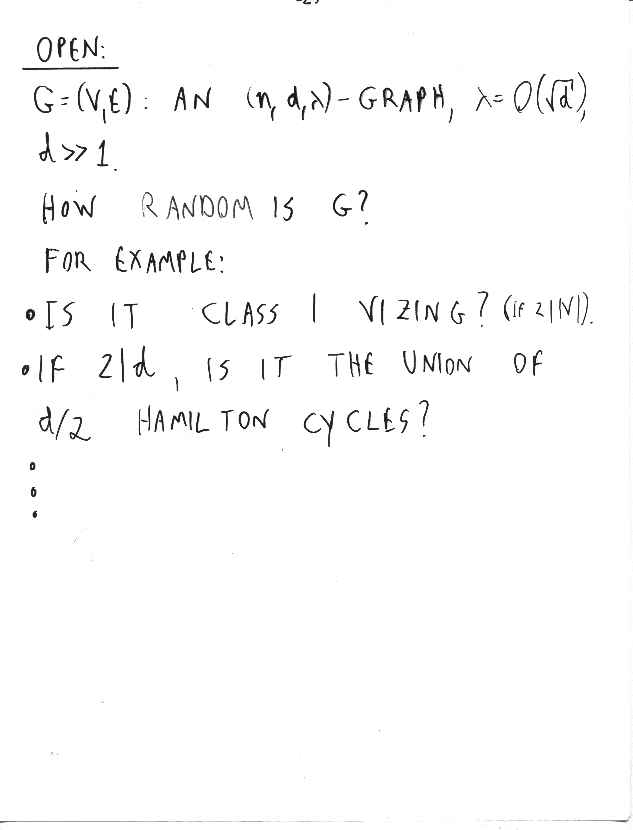 OPEN:
G=(V,E): AN (n,d,λ)-GRAPH, λ=O(√d),
d>>1.
HOW RANDOM IS G?
FOR EXAMPLE:
• IS IT CLASS I VIZING? (if 2||V|).
• IF 2|d, IS IT THE UNION OF
d/2 HAMILTON CYCLES?